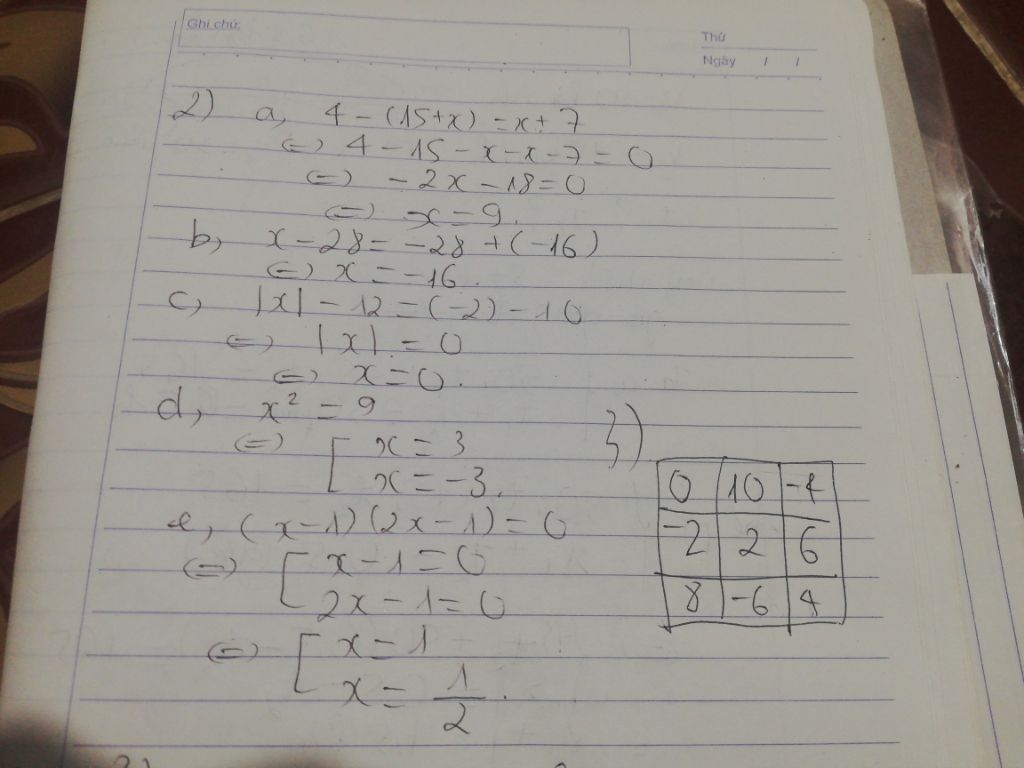 Ghi chú:
Thứ
Ngày / /
2) a, 4 - (15+x) = x + 7
(=) 4 - 15 - x - x - 7 = 0
(=) - 2x - 18 = 0
(=) -x = 9.
b, x - 28 = -28 + (-16)
(=) x = -16.
c, |x| - 12 = (-2) - 10
(=) |x| = 0
(=) x = 0.
d, x² = 9
(=) [ x = 3
x = -3.
e, (x-1)(2x-1) = 0
(=) [ x - 1 = 0
2x - 1 = 0
(=) [ x = 1
x = 1/2.
3)
0 10 -4
-2 2 6
8 -6 4